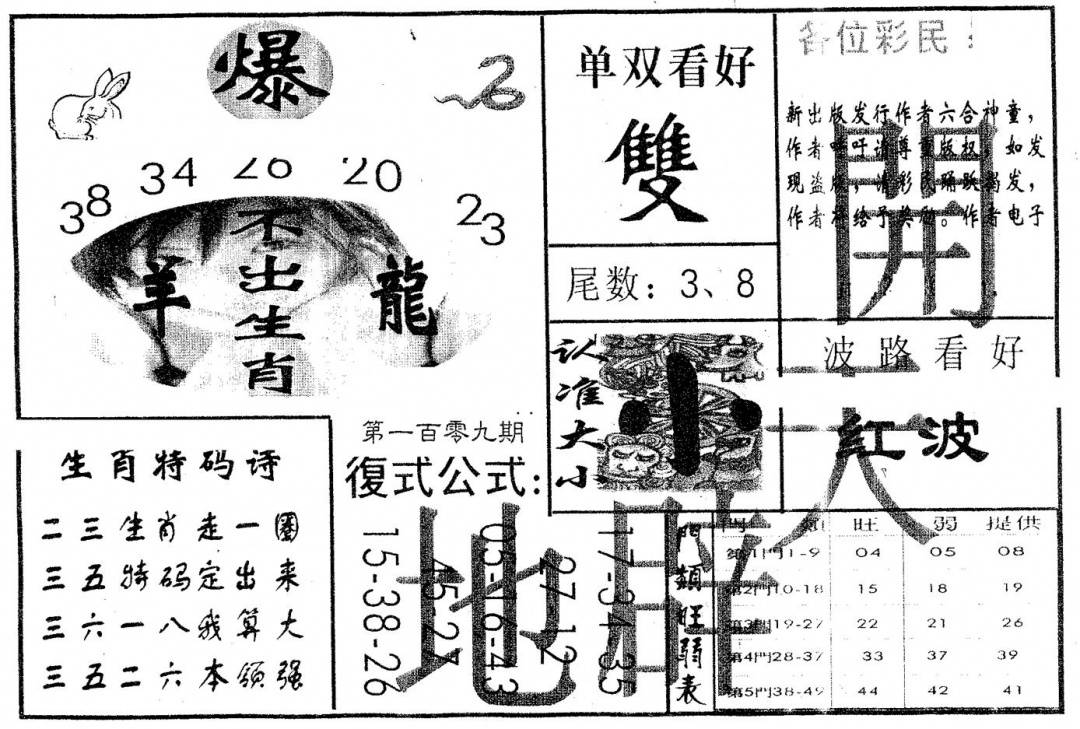 爆
38 34 26 20 23
不出生肖
羊
龍
单双看好
雙
尾数：3、8
认准大小
小
各位彩民：
新出版发行作者六合神童，
作者呼吁请尊重版权，如发
现盗版，请彩民踊跃揭发，
作者将给予奖励。作者电子
波路看好
红波
開
天
地
旺
生肖特码诗
二三生肖走一圈
三五特码定出来
三六一八我算大
三五二六本领强
第一百零九期
復式公式：
15-38-26
45-27
05-16-43
27-12
17-34-35
門類旺弱表
門類 旺 弱 提供
第1門1-9 04 05 08
第2門10-18 15 18 19
第3門19-27 22 21 26
第4門28-37 33 37 39
第5門38-49 44 42 41